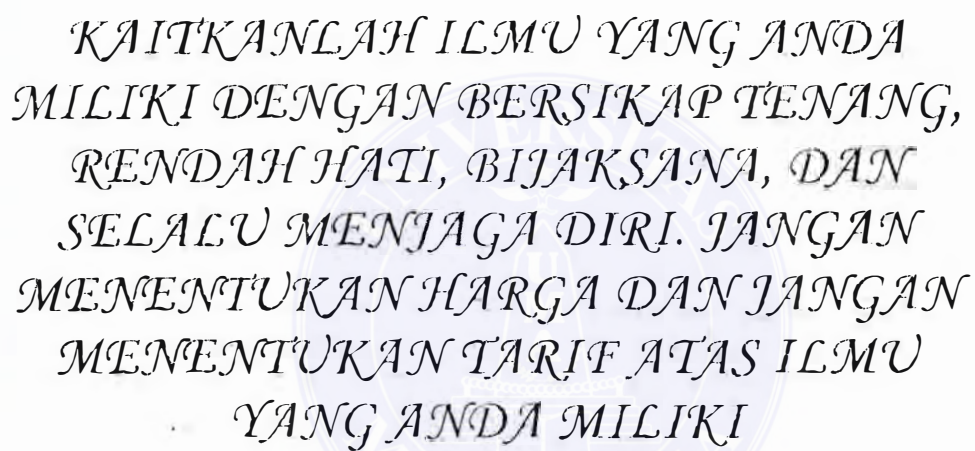 KAITKANLAH ILMU YANG ANDA
MILIKI DENGAN BERSIKAP TENANG,
RENDAH HATI, BIJAKSANA, DAN
SELALU MENJAGA DIRI. JANGAN
MENENTUKAN HARGA DAN JANGAN
MENENTUKAN TARIF ATAS ILMU
YANG ANDA MILIKI